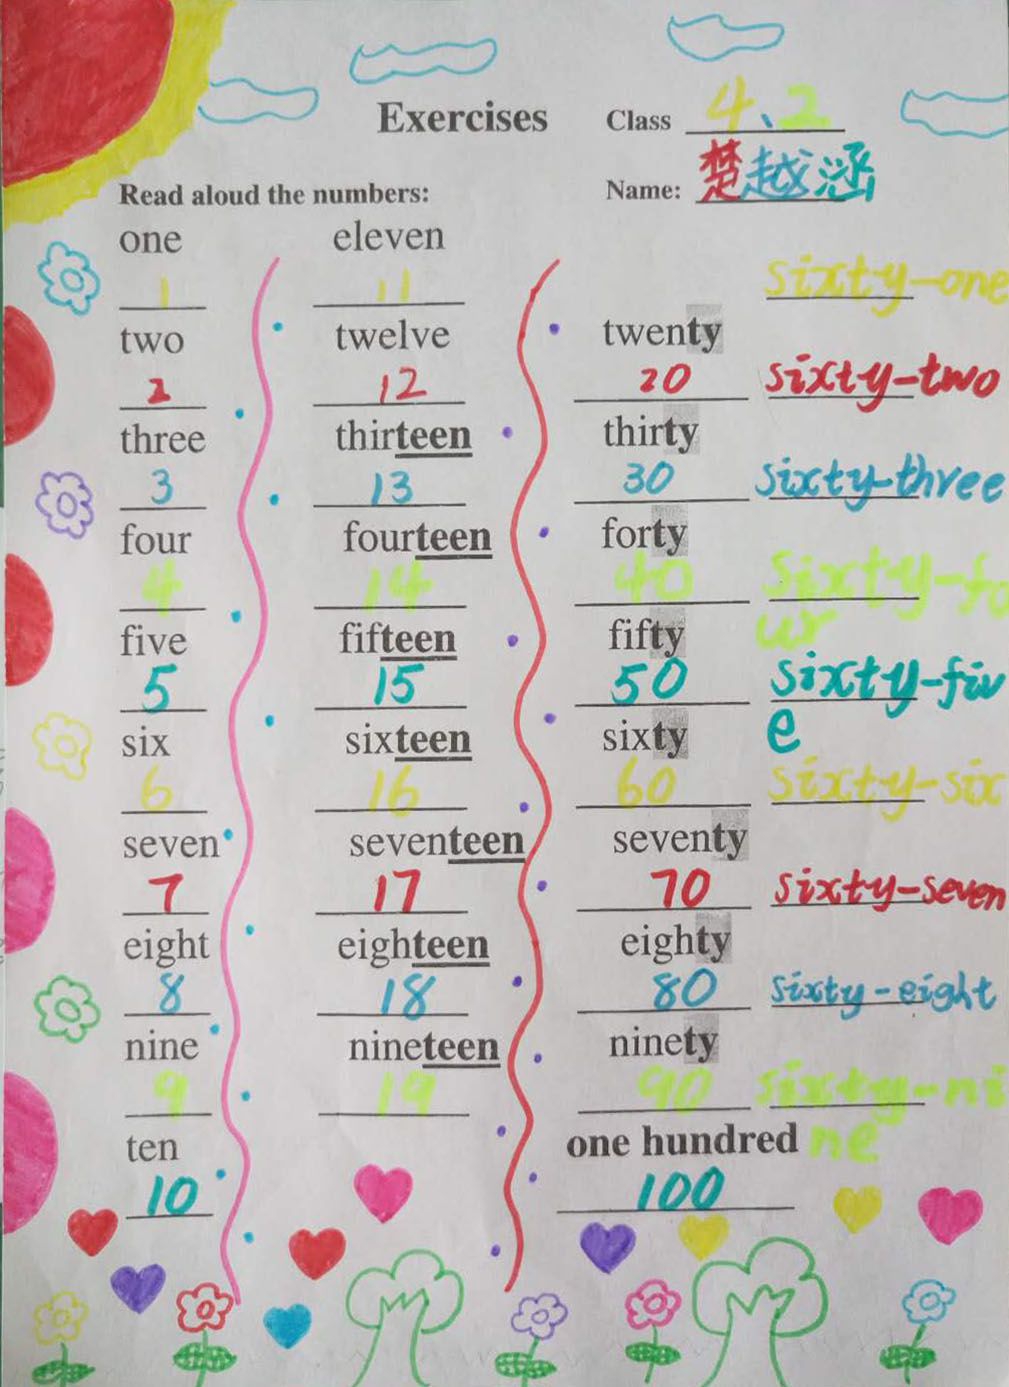 Exercises Class 4、2
Read aloud the numbers: Name: 楚越涵
one eleven
1 11 sixty-one
two twelve twenty
2 12 20 sixty-two
three thirteen thirty
3 13 30 sixty-three
four fourteen forty
4 14 40 sixty-fo
five fifteen fifty ur
5 15 50 sixty-fiv
six sixteen sixty e
6 16 60 sixty-six
seven seventeen seventy
7 17 70 sixty-seven
eight eighteen eighty
8 18 80 sixty-eight
nine nineteen ninety
9 19 90 sixty-ni
ten one hundred ne
10 100